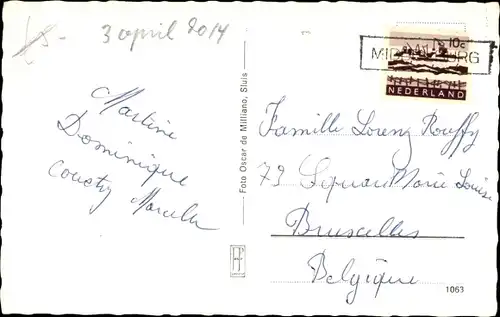 3 april 2014
10c
NEDERLAND
Martine
Dominique
Foto Oscar de Milliano, Sluis
Famille Lorenz Rouffy
79 Square Marie Louise
Bruxelles
Belgique
1063